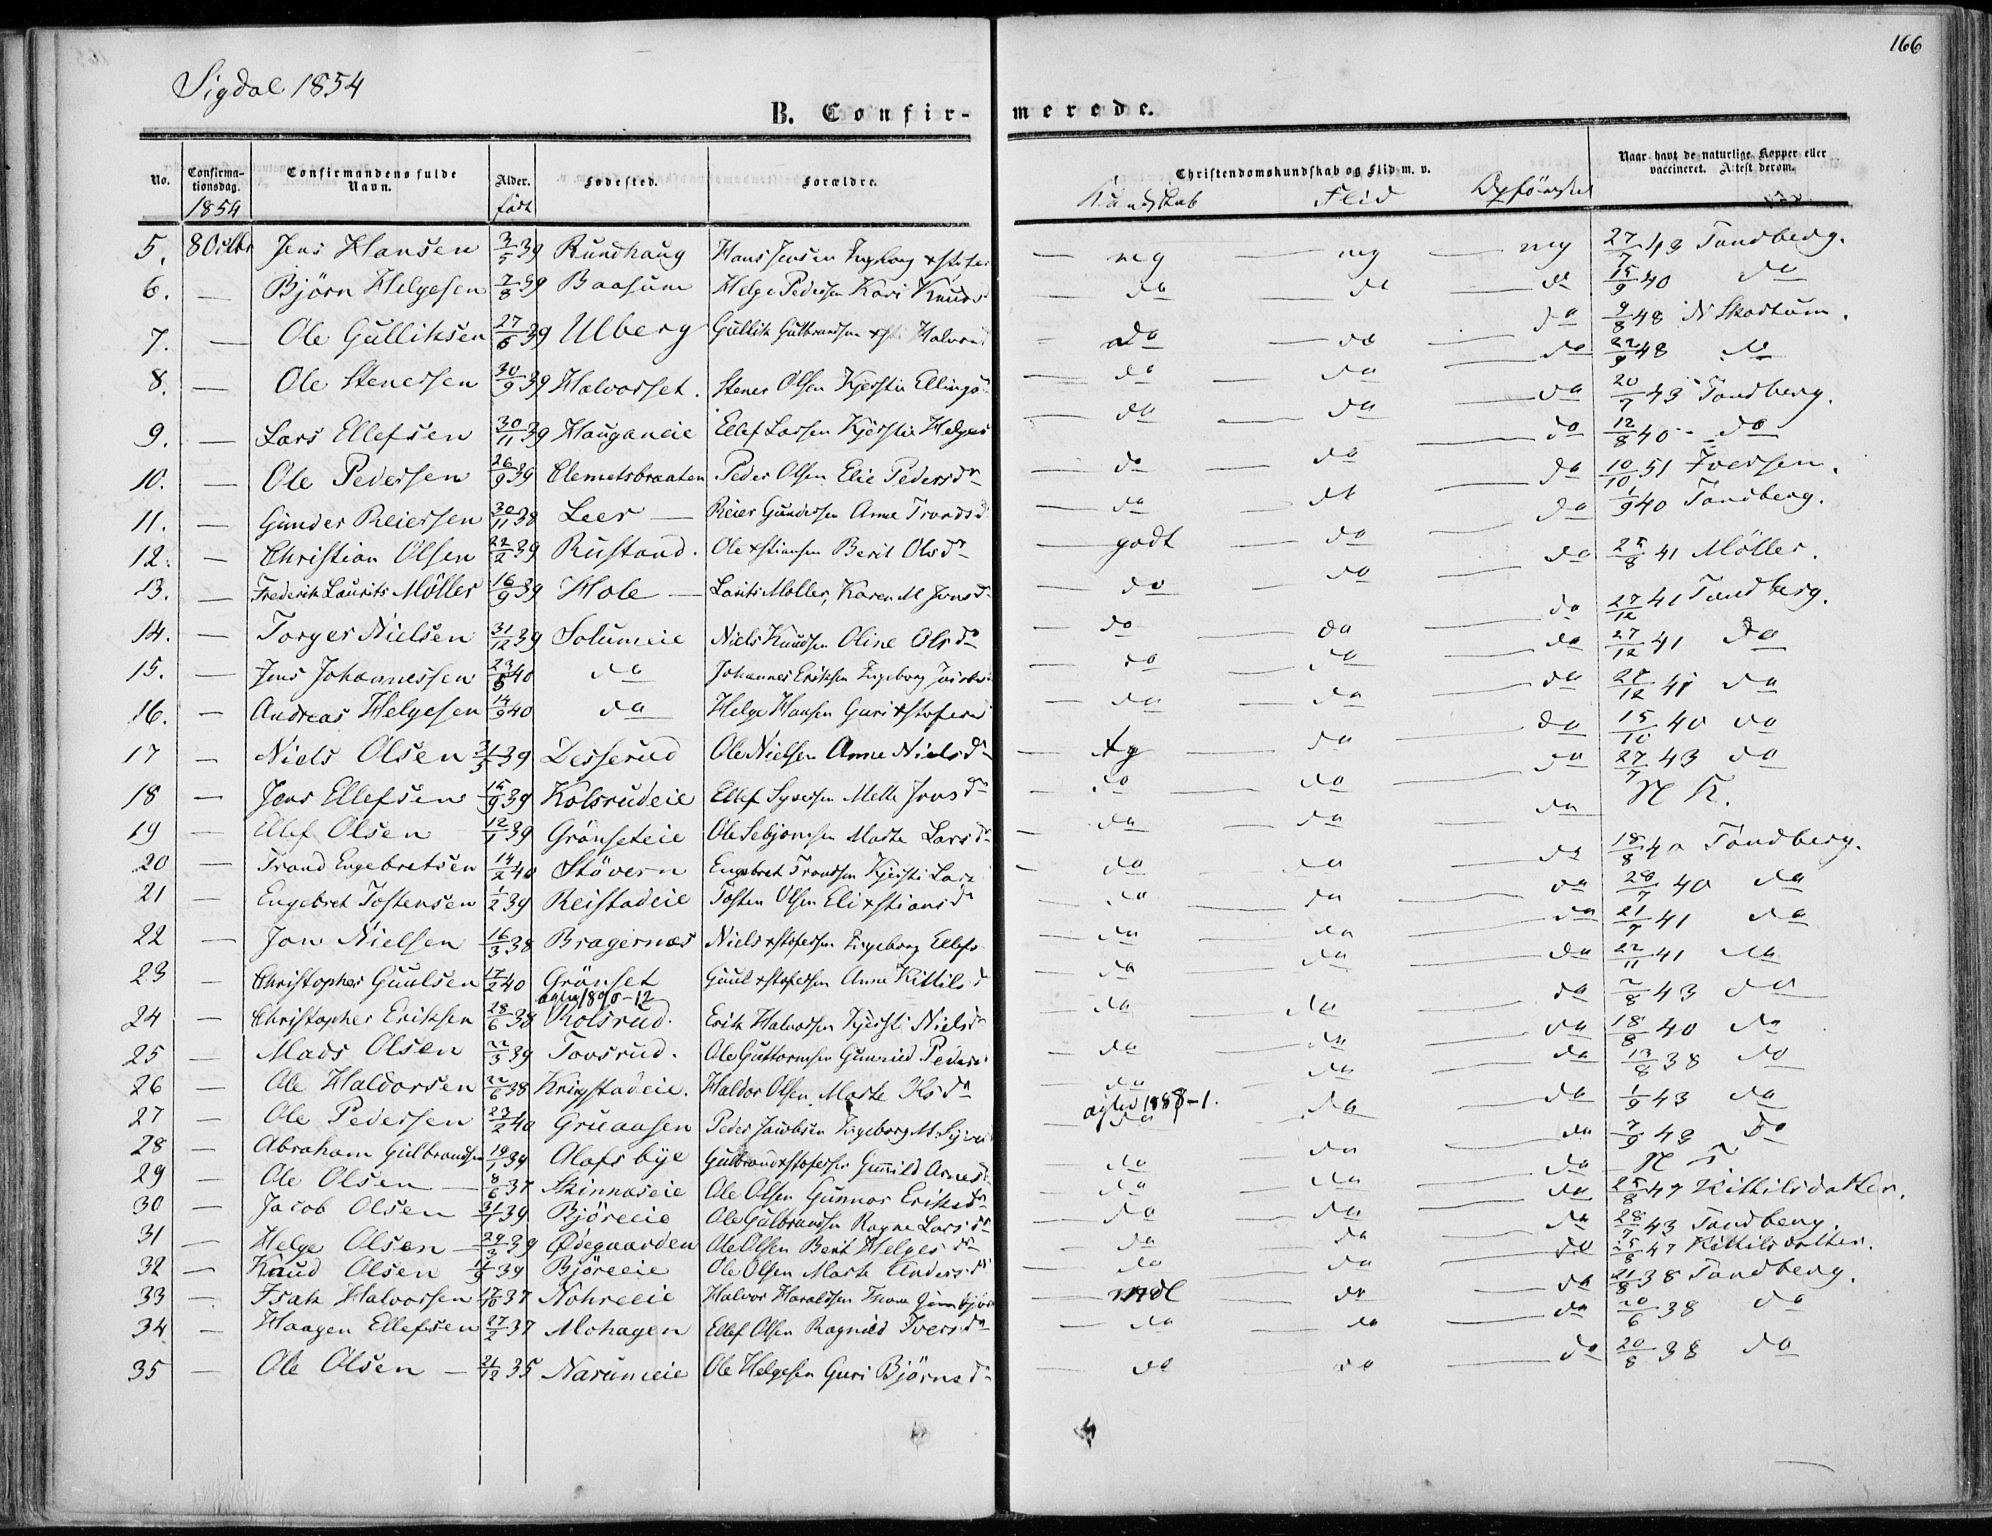 166
Sigdal 1854
B. Confirmerede.
No. Confirmationsdag. Confirmandens fulde Navn. Alder. Fødested. Forældre. Christendomskundskab og Flid m. v. Naar havt de naturlige Kopper eller vaccineret. Attest derom.
1854 født Kundskab Flid Opførsel
5. 8 Octbr Jens Hansen 3/5 39 Rundhaug Hans Jensen Ingeborg — mg — mg — mg 27/7 43 Tandberg.
6. — Bjørn Helgesen 7/8 39 Baasum Helge Pedersen Kari Knuds — do — do — do 15/9 40 do
7. — Ole Gulliksen 27/6 39 Ulberg Gullik Gulbrandsen Halvors — do — do — do 9/8 48 N Skartum.
8. — Ole Stenersen 30/9 39 Halvorset. Stener Olsen Kjersti Ellings — do — do — do 22/9 48 do
9. — Lars Ellefsen 30/11 39 Hauganeie Ellef Larsen Kjersti Helges — do — do — do 20/7 43 Tandberg.
10. — Ole Pedersen 26/9 39 Clemetsbraaten Peder Olsen Elie Pedersdr — do — do — do 12/8 40 do
11. — Gunder Reiersen 30/11 38 Leer — Reier Gundersen Anne Trondsd — do — do — do 10/10 51 Iversen.
12. — Christian Olsen 22/2 39 Rustand. Ole xstiansen Berit Olsdr — godt — do — do 1/9 40 Tandberg.
13. — Frederik Laurits Möller 16/9 39 Hole — Lauits Møller, Karen M Jensd — do — do — do 25/8 41 Möller.
14. — Torger Nielsen 31/12 39 Solumeie Niels Knudsen Oline Olsdr — do — do — do 27/12 41 Tandberg.
15. — Jens Johannessen 23/5 40 do Johannes Eriksen Ingeborg — do — do — do 27/12 41 do
16. — Andreas Helgesen 14/9 40 do Helge Hansen Guri xstofers — do — do — do 27/12 41 do
17 — Niels Olsen 39 Desserud Ole Nielsen Anne Nielsdr — tg — do — do 15/10 40 do
18 — Jens Ellefsen 15/9 39 Kolsrudeie Ellef Syversen Mette Jonsdr — do — do — do 27/7 43 do
19 — Ellef Olsen 12/1 39 Grønseteie Ole Sebjørnsen Marte Larsdr — do — do — do N K.
20 — Trond Engebretsen 14/2 40 Støvern Engebret Trondsen Kjersti Lars — do — do — do 18/8 40 Tandberg.
21 — Engebret Tostensen 1/2 39 Reistadeie Tosten Olsen Eli xstiansdr — do — do — do 28/7 40 do
22 — Jon Nielsen 16/3 38 Bragernæs Niels xstofersen Ingeborg Ellefs — do — do — do 21/7 41 do
23 — Christopher Guulsen 17/2 40 Grønset Guul xstofersen Anne Kittilsd — do — do — do 22/11 41 do
1890-12
24 — Christopher Eriksen 28/6 38 Kolsrud. Erik Halvorsen Kjersti Nielsdr — do — do — do 2/8 43 do
25 — Mads Olsen 22/3 39 Tovsrud. Ole Guttormsen Gunnild Peders — do — do — do 18/8 40 do
26 — Ole Haldorsen 22/6 38 Kringstadeie. Haldor Olsen Marte — do — do — do 13/8 38 do
1888-1.
27 — Ole Pedersen 23/2 40 Gruaasen Peder Jacobsen Ingeborg M. — do — do — do 1/9 43 do
28 — Abraham Gulbrandsen 19/1 39 Olafsbye Gulbrand xstofersen Gunild Arnes — do — do — do 7/9 43 do
29 — Ole Olsen — 8/6 37 Skinnæseie Ole Olsen Gunnor Eriksdr — do — do — do
30 — Jacob Olsen 31/7 39 Bjøreeie Ole Gulbrandsen Ragne Larsdr — do — do — do 25/8 47 Kittilsdatter.
31 — Helge Olsen — 24/3 39 Ødegaarden Ole Olsen Berit Helgesdr — do — do — do 28/7 43 Tandberg.
32 — Knud Olsen 39 Bjøreeie Ole Olsen Marte Andersdr — do — do — do 25/8 47 Kittilsdatter.
33 — Isak Halvorsen 17/10 37 Nohreeie Halvor Haraldsen Thone Gunbjør — mdl — do — do 21/8 38 Tandberg.
34 — Haagen Ellefsen 27/2 37 Mohagen Ellef Olsen Ragnild Iversdr — do — do — do 20/6 38 do
35 — Ole Olsen — 21/12 35 Narumeie Ole Helgesen Guri Bjørnsdr — do — do — do 20/8 38 do